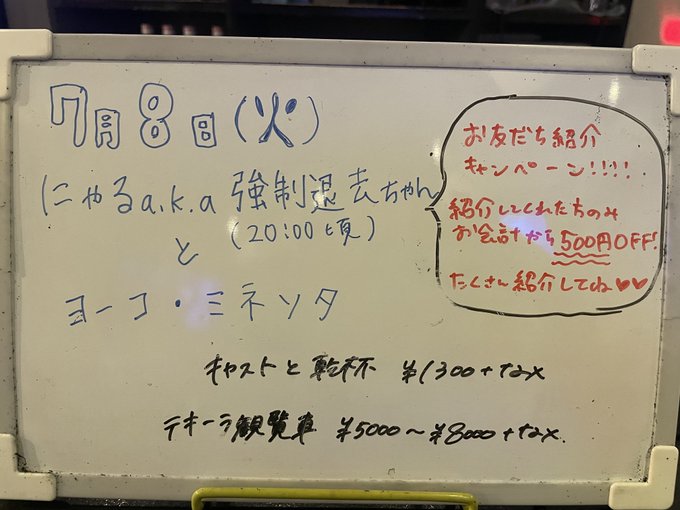 7月8日(火)
にゃるa.k.a 強制退去ちゃん
(20:00頃)
と
ヨーコ・ミネソタ
お友だち紹介
キャンペーン!!!!
紹介してくれたらのみ
お会計から500円OFF!
たくさん紹介してね♥♥
キャストと乾杯 ¥1300+tax
テキーラ観覧車 ¥5000~¥8000+tax.